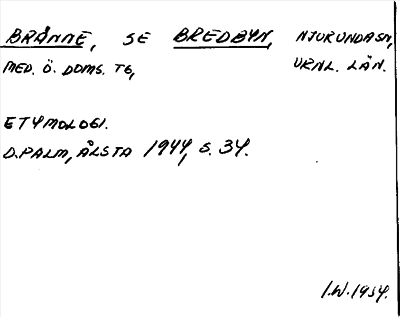 BRÄNNE, SE BREDBYN, NJURUNDA SN,
MED. Ö. DOMS. TG, VRNL. LÄN.
ETYMOLOGI.
D. PALM, ÅLSTA 1944, S. 34.
I.W. 1954.